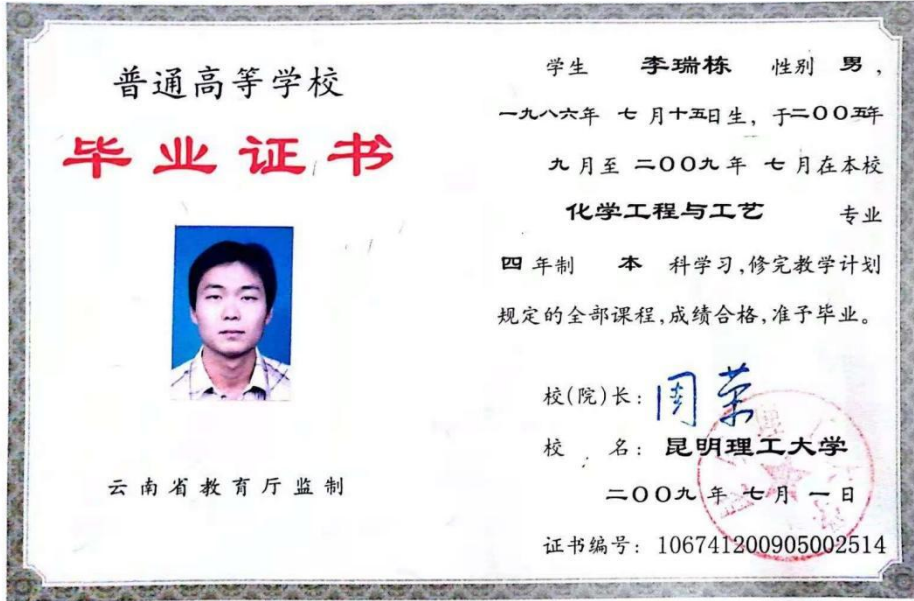 普通高等学校
毕业证书
云南省教育厅监制
学生 李瑞栋 性别 男，
一九八六年 七 月十五日生，于二〇〇五年
九 月至 二〇〇九 年 七 月在本校
化学工程与工艺 专业
四 年制 本 科学习，修完教学计划
规定的全部课程，成绩合格，准予毕业。
校(院)长：周荣
校 名：昆明理工大学
二〇〇九 年 七月 一 日
证书编号：106741200905002514